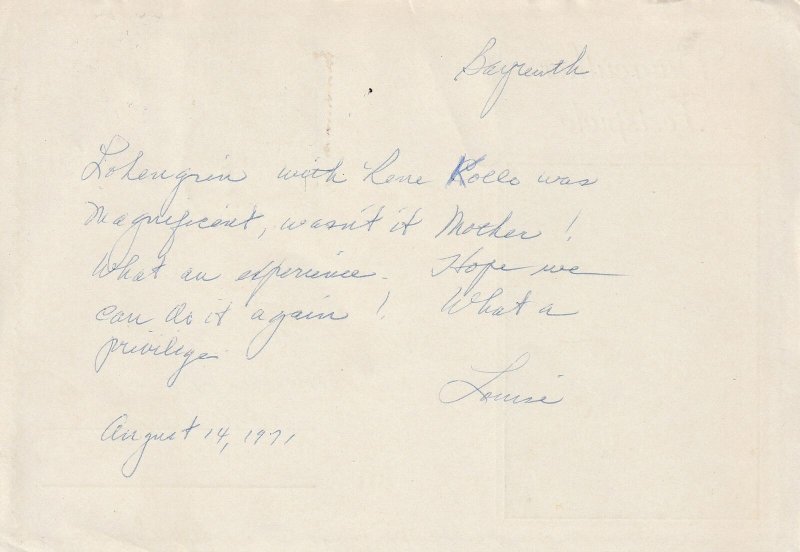 Bayreuth
Lohengrin with Rene Kollo was
magnificent, wasn't it Mother!
What an experience. Hope we
can do it again! What a
privilige.
Louise
August 14, 1971